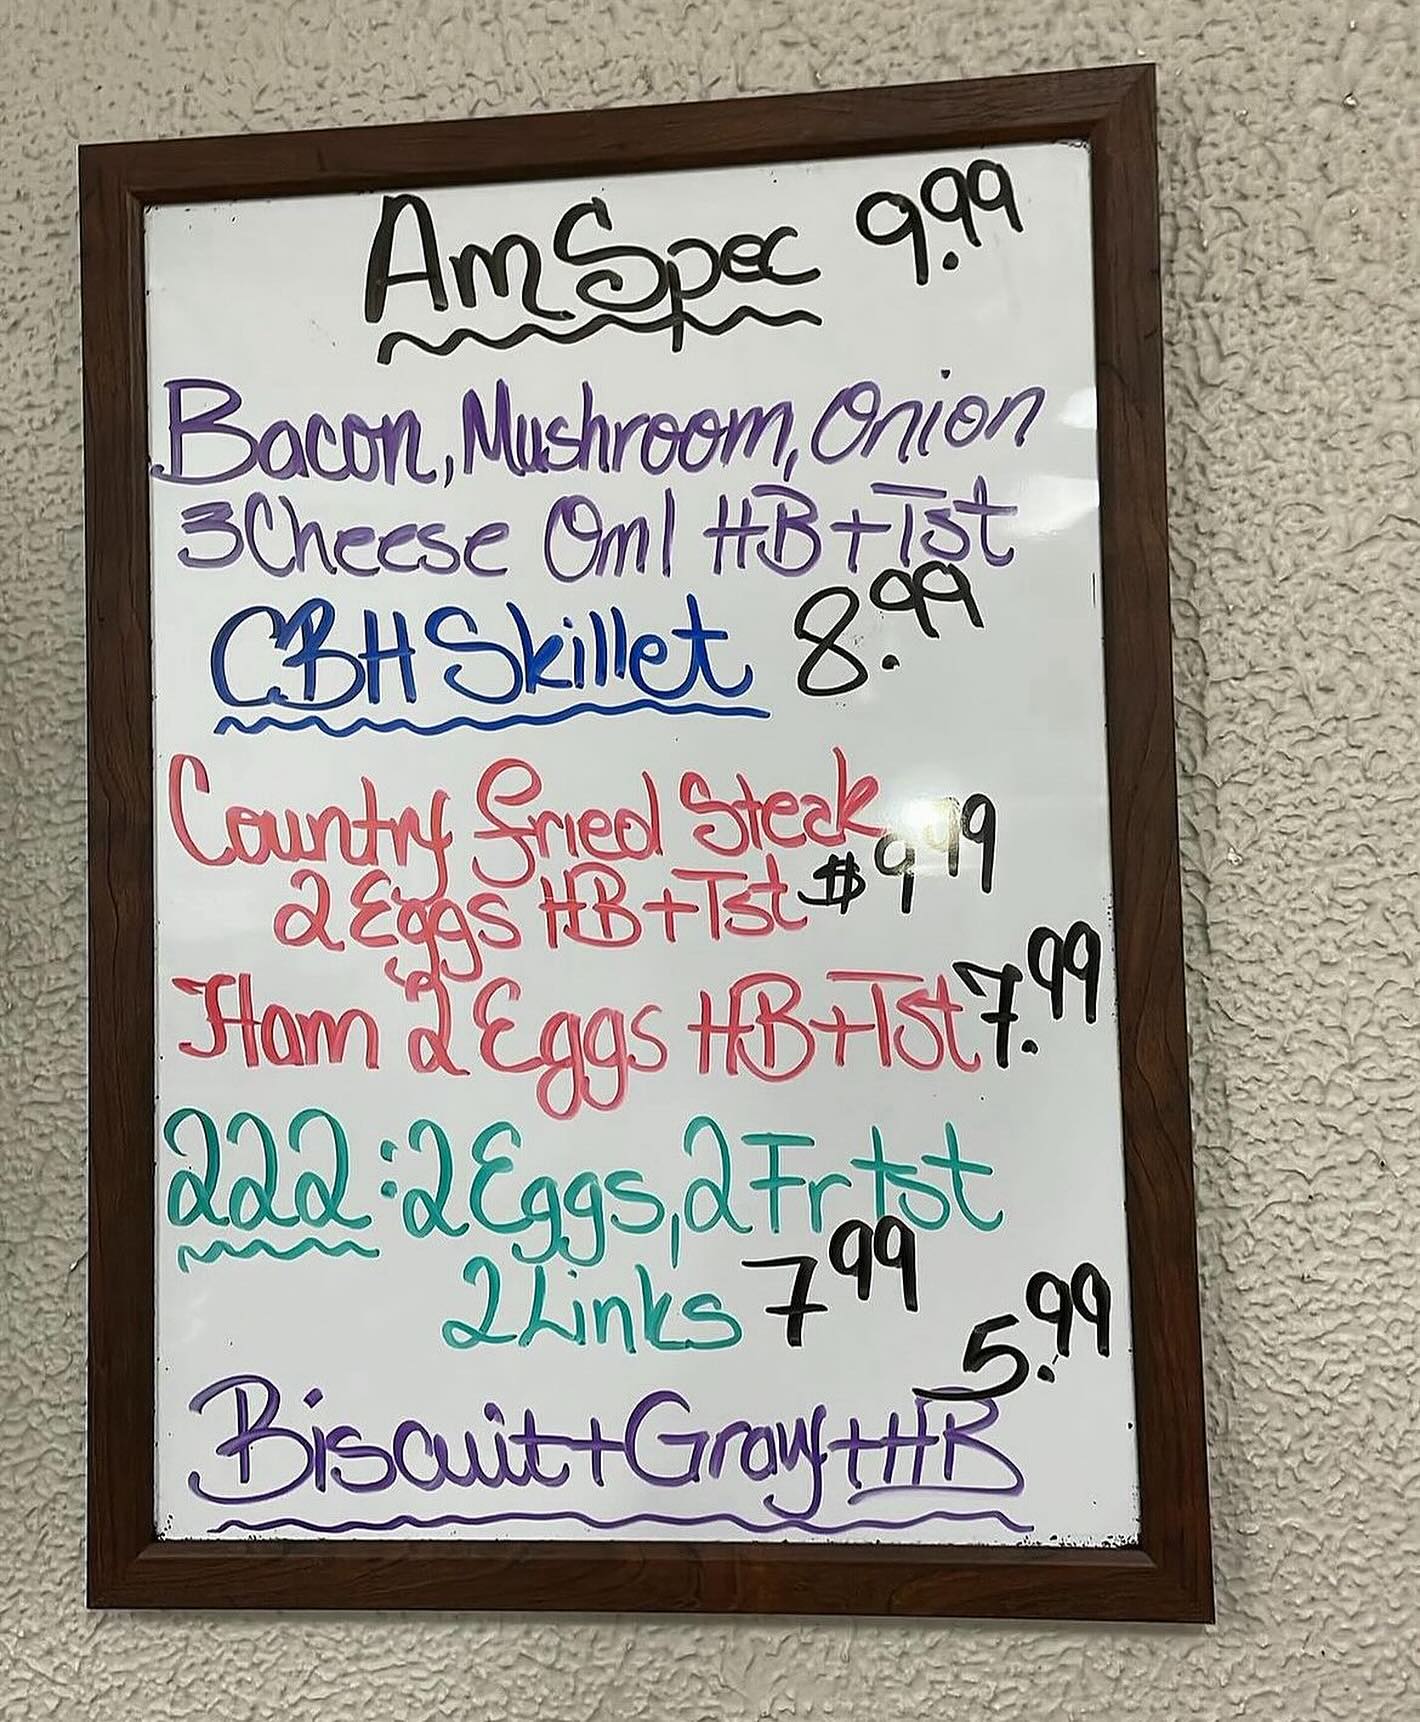 Am Spec 9.99
Bacon, Mushroom, Onion
3 Cheese Oml HB + Tst
CBH Skillet 8.99
Country Fried Steak
2 Eggs HB + Tst $9.99
Ham 2 Eggs HB + Tst 7.99
222: 2 Eggs, 2 Fr tst
2 Links 7 99
5.99
Biscuit + Gravy + HB